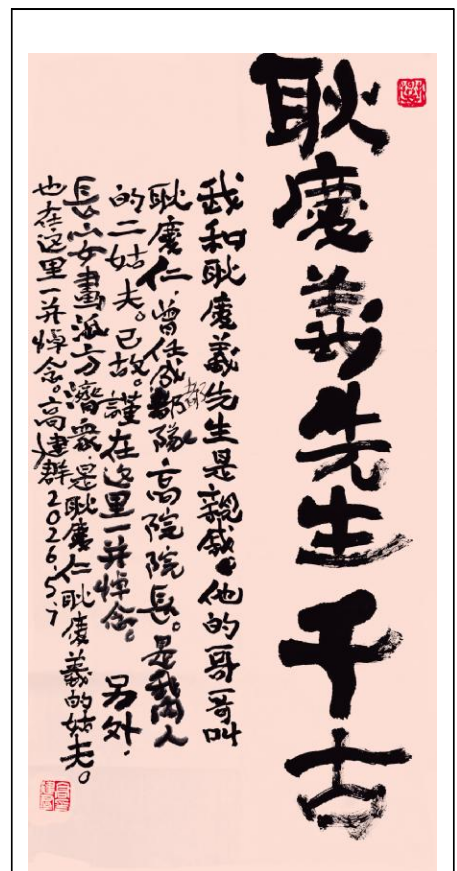 耿慶義先生千古
我和耿慶義先生是親戚。他的哥哥叫
耿慶仁,曾任成都部隊高院院長。是我内人
的二姑夫。已故。謹在这里一并悼念。另外,
長安畫派方濟衆,是耿慶仁耿慶義的姑夫。
也在这里一并悼念。高建群2026.5.7